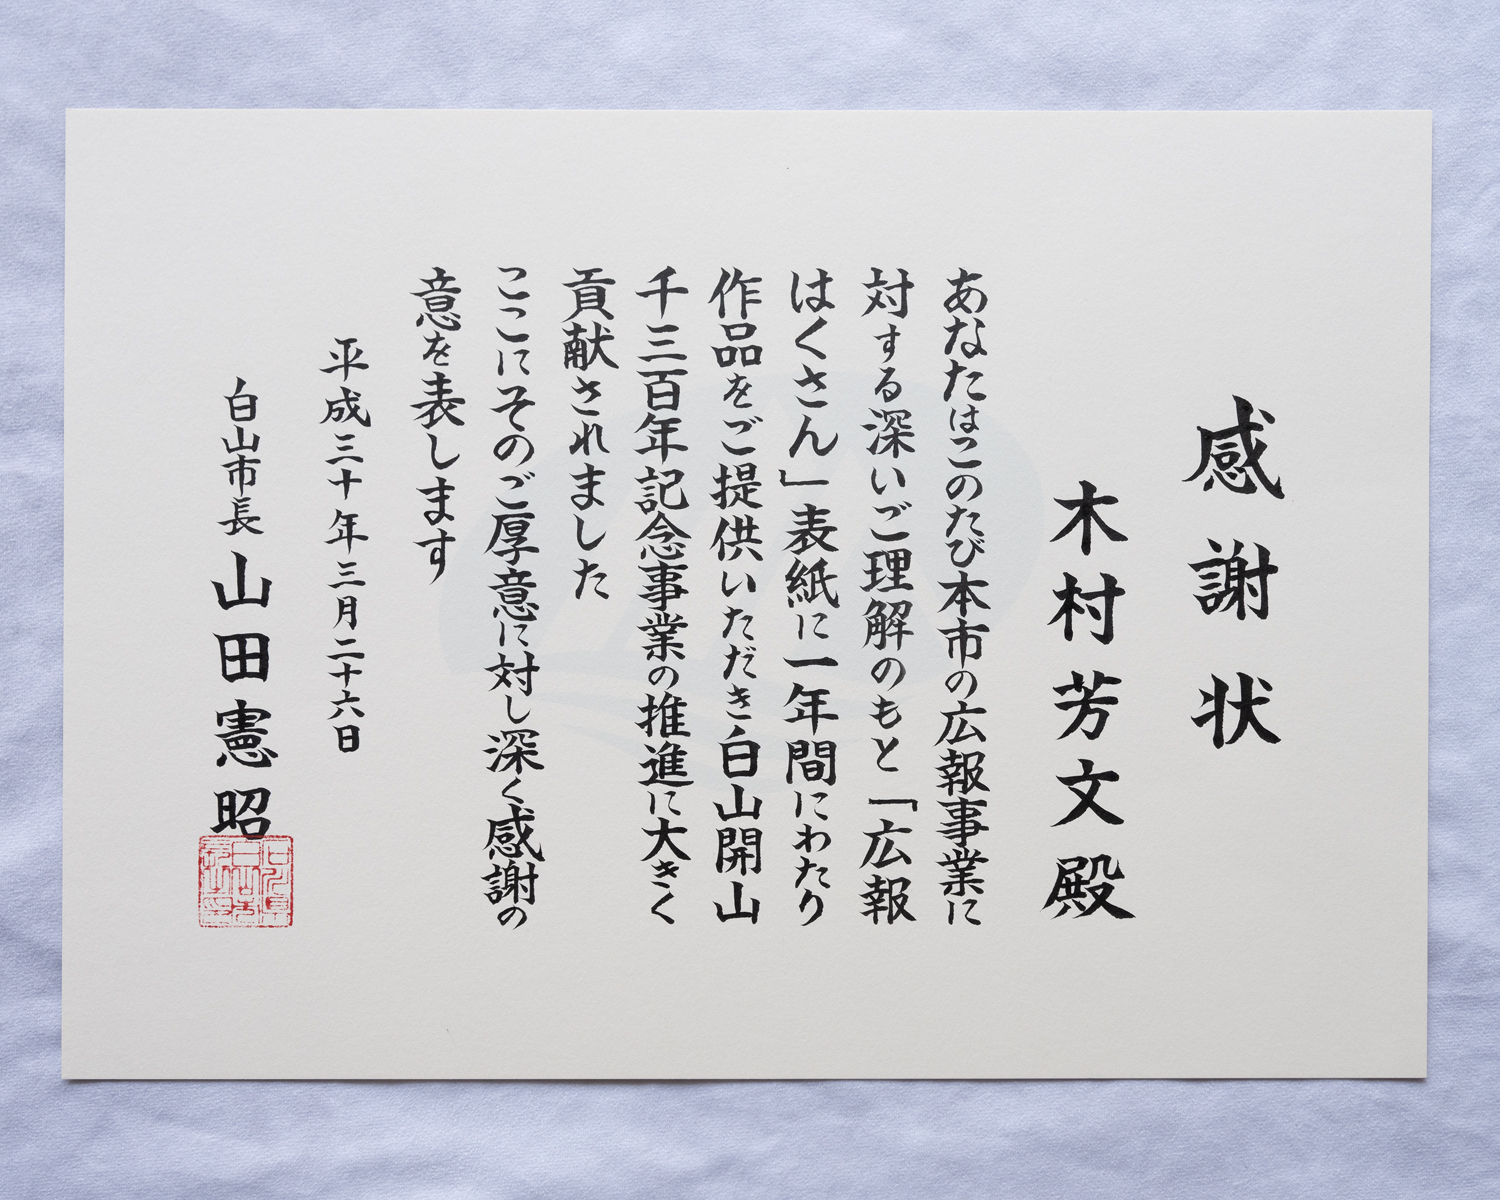 感謝状
木村芳文殿
あなたはこのたび本市の広報事業に
対する深いご理解のもと「広報
はくさん」表紙に一年間にわたり
作品をご提供いただき白山開山
千三百年記念事業の推進に大きく
貢献されました
ここにそのご厚意に対し深く感謝の
意を表します
平成三十年三月二十六日
白山市長山田憲昭